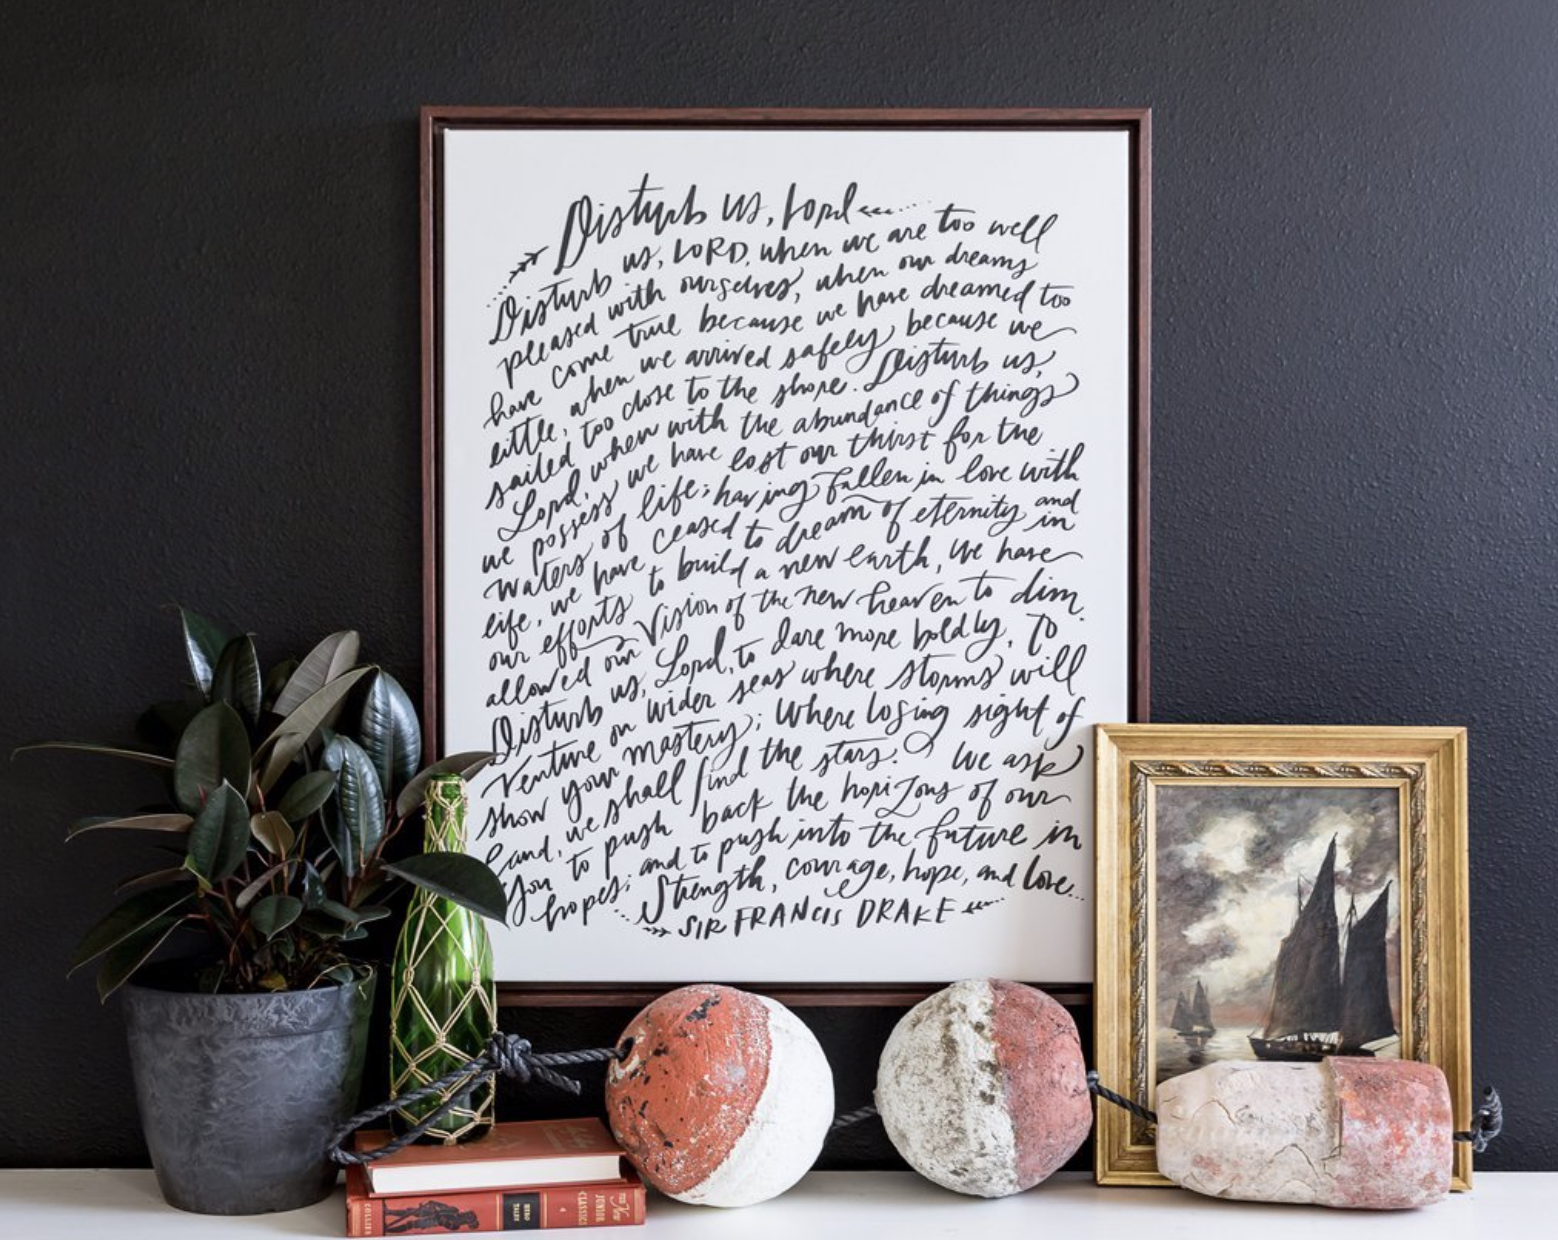 Disturb us, Lord
Disturb us, LORD, when we are too well
pleased with ourselves, when our dreams
have come true because we have dreamed too
little, when we arrived safely because we
sailed too close to the shore. Disturb us,
Lord, when with the abundance of things
we possess we have lost our thirst for the
waters of life; having fallen in love with
life, we have ceased to dream of eternity and
our efforts to build a new earth, we have in
allowed our Vision of the new heaven to dim.
Disturb us, Lord, to dare more boldly, To
Venture on wider seas where storms will
show your mastery; Where losing sight of
land, we shall find the stars. We ask
You to push back the horizons of our
hopes; and to push into the future in
Strength, courage, hope, and love.
SIR FRANCIS DRAKE
COLLIER
HERO TALES
4
The New
JUNIOR
CLASSICS